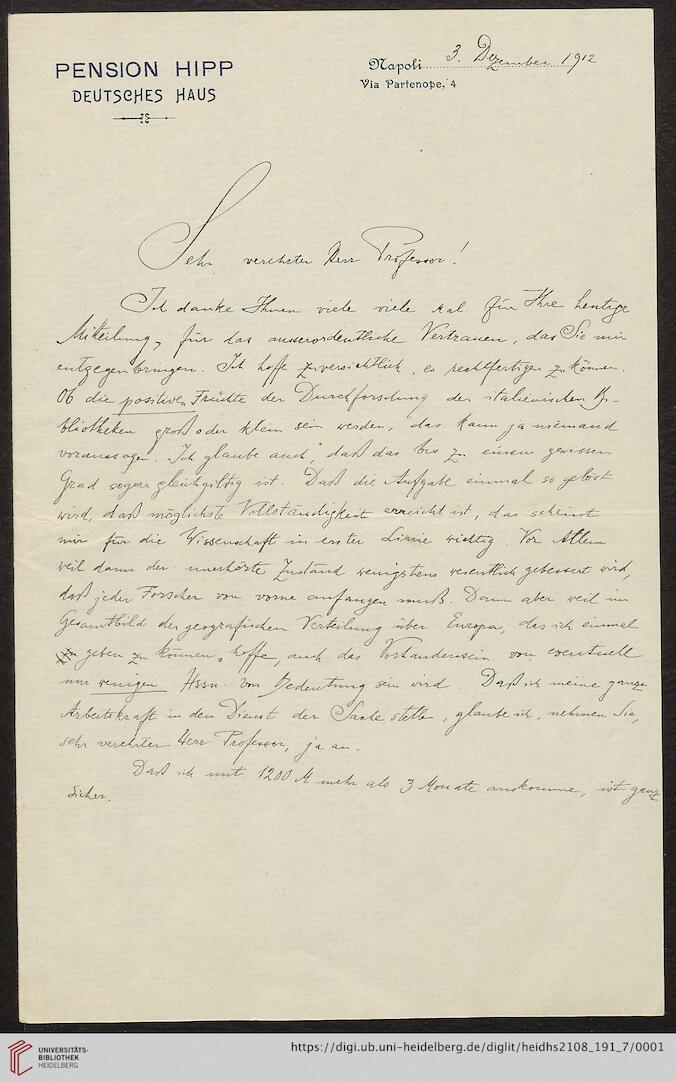 PENSION HIPP
DEUTSCHES HAUS
Napoli 3. Dezember 1912
Via Partenope, 4
Sehr verehrter Herr Professor!
Ich danke Ihnen viele viele Mal für Ihre heutige
Mitteilung, für das ausserordentliche Vertrauen, das Sie mir
entgegenbringen. Ich hoffe zuversichtlich, es rechtfertigen zu können.
Ob die positiven Früchte der Durchforschung der italienischen Bi-
bliotheken groß oder klein sein werden, das kann ja niemand
voraussagen. Ich glaube auch, daß das bis zu einem gewissen
Grad sogar gleichgiltig ist. Daß die Aufgabe einmal so gelöst
wird, daß möglichste Vollständigkeit erreicht ist, das scheint
mir für die Wissenschaft in erster Linie wichtig. Vor Allem
weil dann der unerhörte Zustand wenigstens wesentlich gebessert wird,
daß jeder Forscher von vorne anfangen muß. Dann aber weil im
Gesamtbild der geografischen Verteilung über Europa, das ich einmal
zu geben zu können, hoffe, auch das Vorhandensein von eventuell
nur wenigen Hssn. von Bedeutung sein wird. Daß ich meine ganze
Arbeitskraft in den Dienst der Sache stelle, glaube ich, nehmen Sie,
sehr verehrter Herr Professor, ja an.
Daß ich mit 1200 M mehr als 3 Monate auskomme, ist ganz
sicher.
UNIVERSITÄTS-
BIBLIOTHEK
HEIDELBERG
https://digi.ub.uni-heidelberg.de/diglit/heidhs2108_191_7/0001